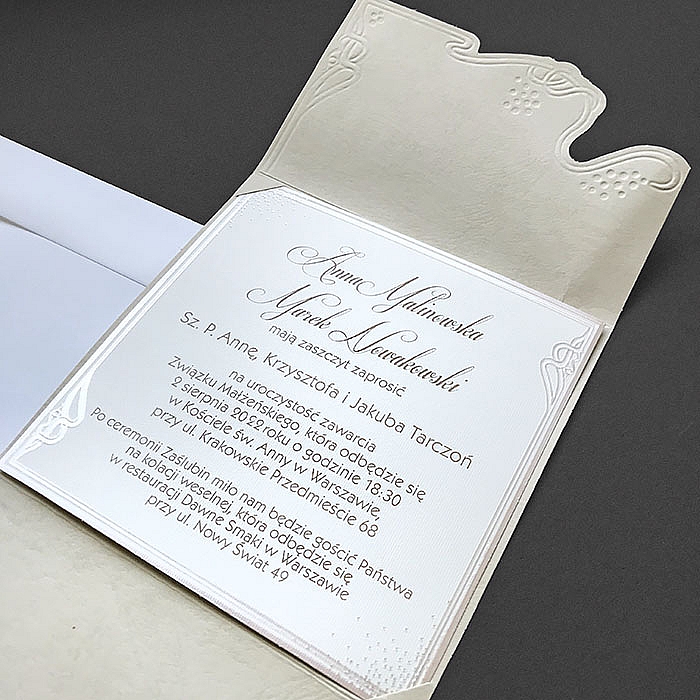 Anna Malinowska
Marek Nowakowski
mają zaszczyt zaprosić
Sz. P. Annę, Krzysztofa i Jakuba Tarczoń
na uroczystość zawarcia
Związku Małżeńskiego, która odbędzie się
2 sierpnia 2022 roku o godzinie 18:30
w Kościele św. Anny w Warszawie,
przy ul. Krakowskie Przedmieście 68
Po ceremonii Zaślubin miło nam będzie gościć Państwa
na kolacji weselnej, która odbędzie się
w restauracji Dawne Smaki w Warszawie
przy ul. Nowy Świat 49